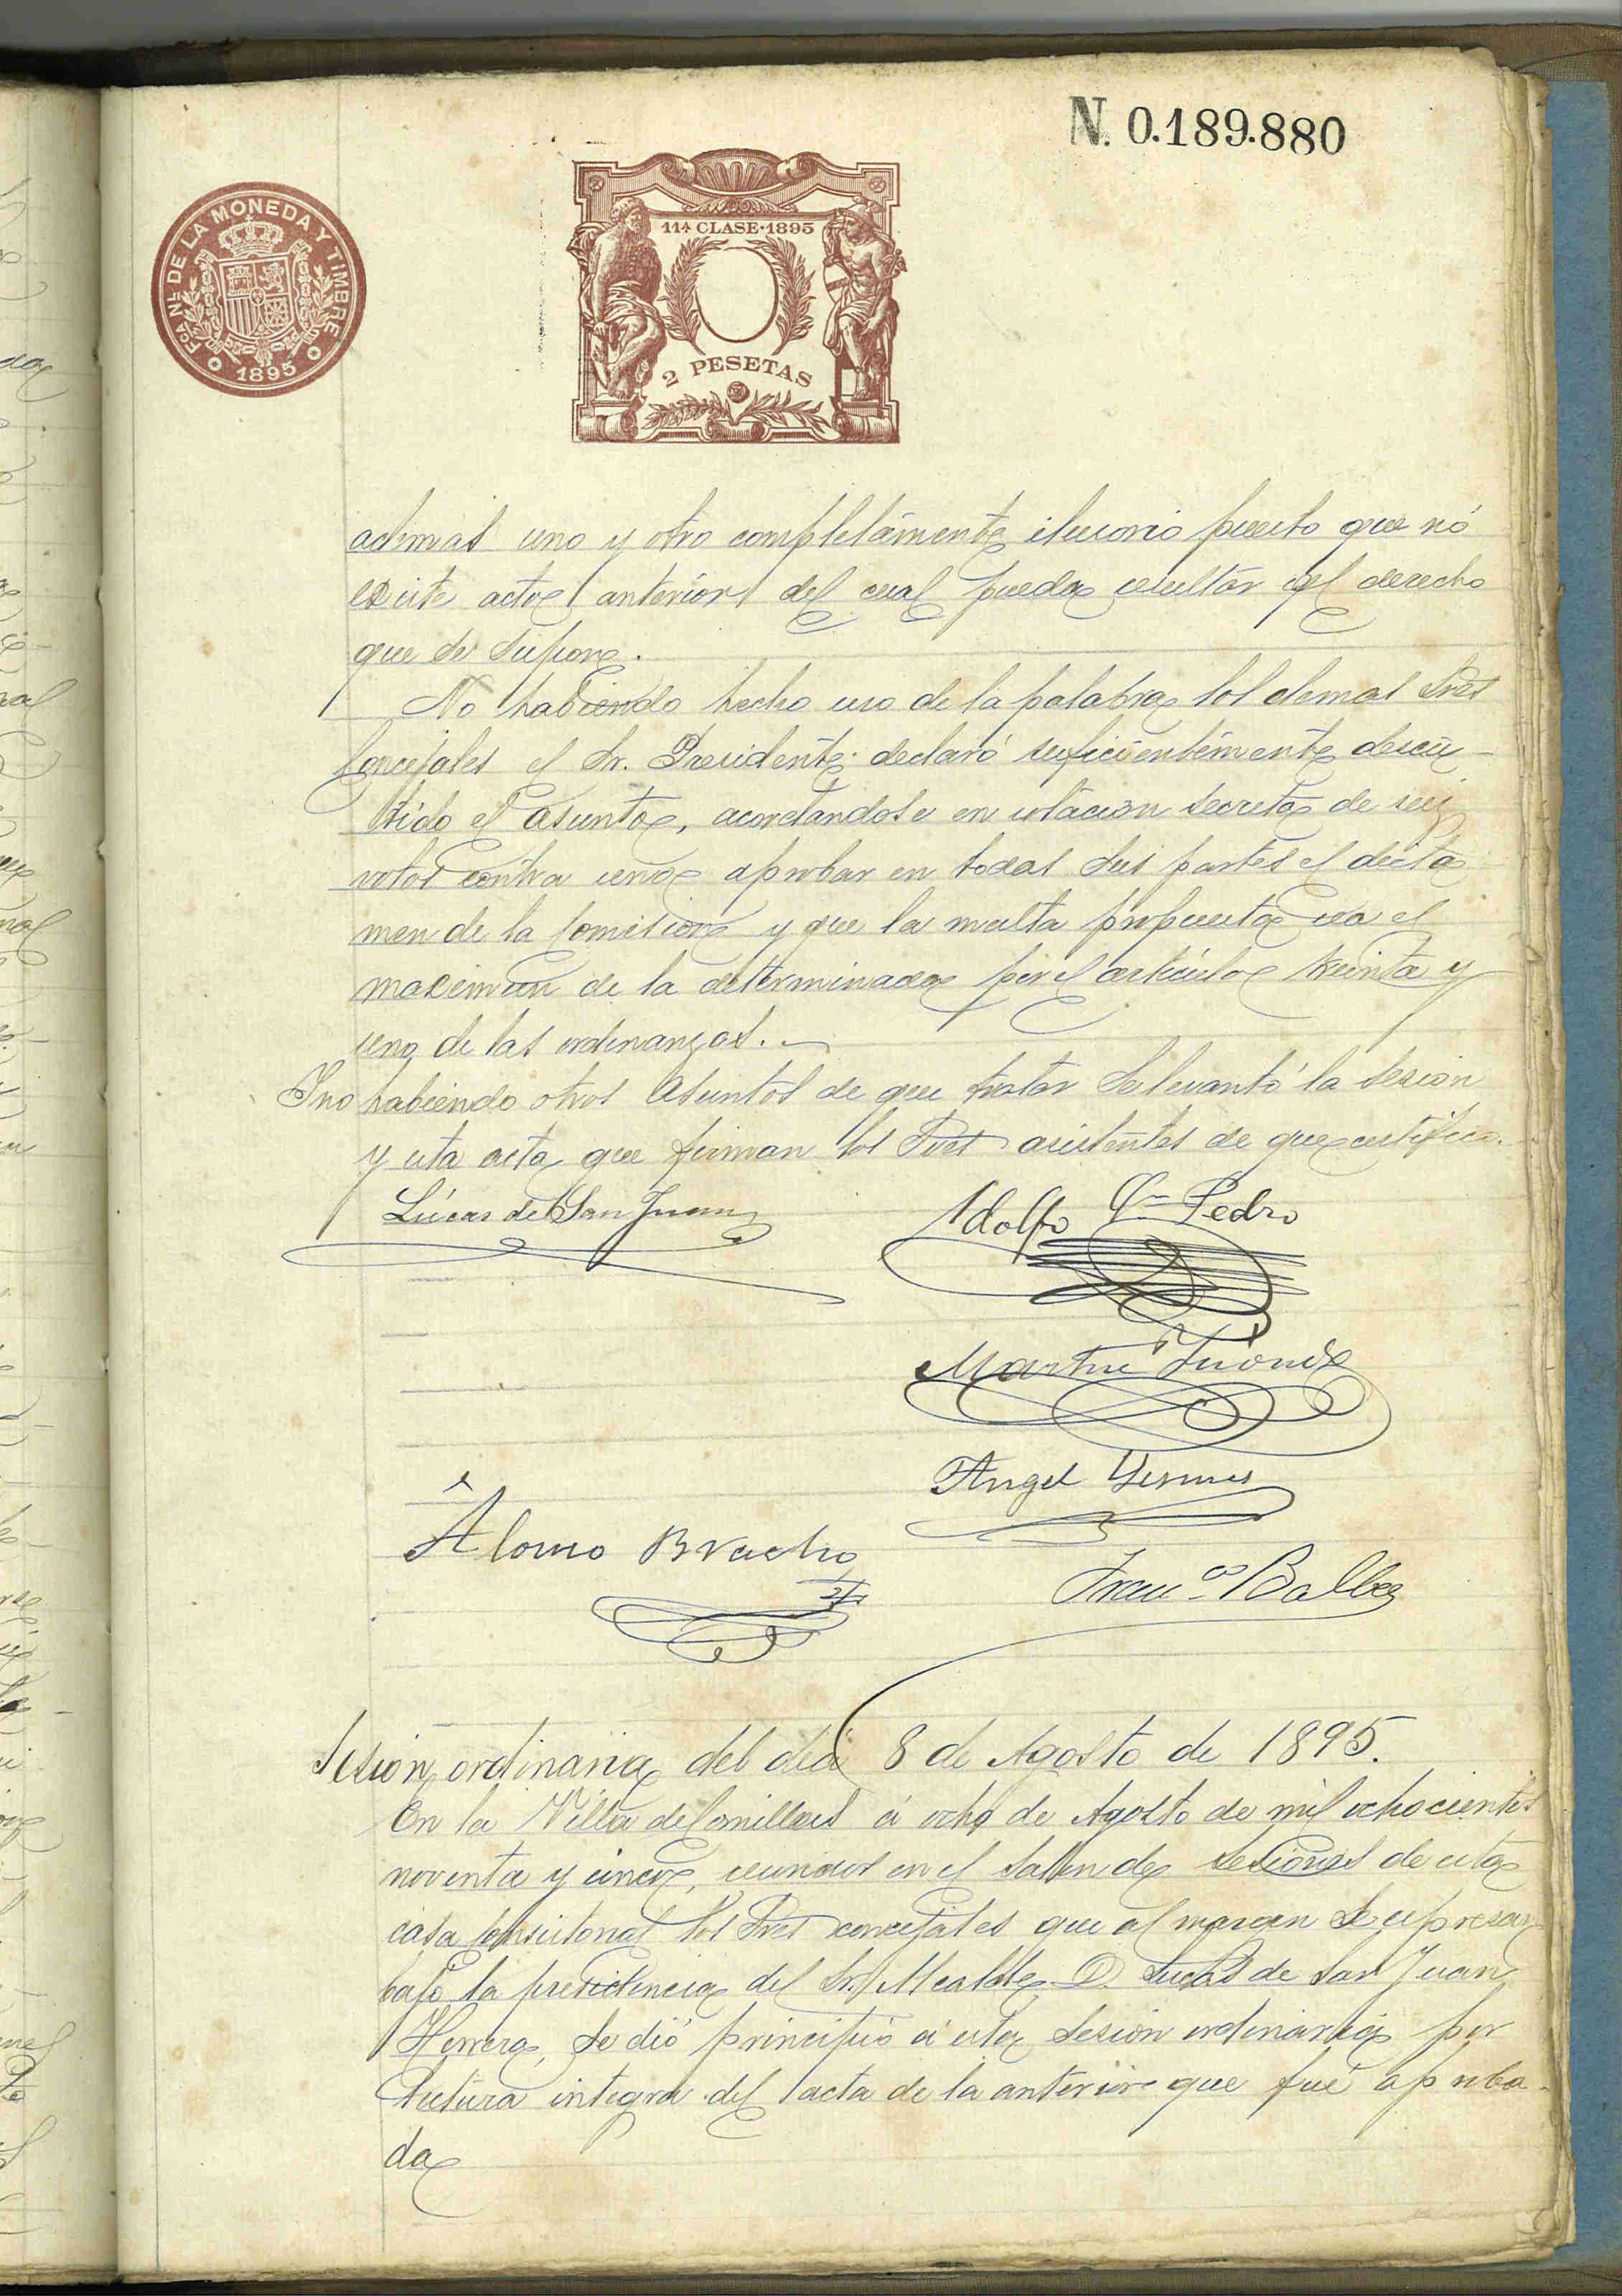 N. 0.189.880
FCA. NL. DE LA MONEDA Y TIMBRE
1895
11ª CLASE·1895
2 PESETAS
ademas uno y otro completamente ilusorio puesto que nó
existe acto anterior del cual pueda resultar el derecho
que se supone.
No habiendo hecho uso de la palabra los demas Sres
Concejales el Sr. Presidente declaró suficientemente discu-
tido el asunto, acordandose en votacion secreta de seis
votos contra uno aprobar en todas sus partes el dicta
men de la Comision y que la multa propuesta sea el
maximun de la determinada por el articulo treinta y
uno de las ordenanzas.
Y no habiendo otros asuntos de que tratar se levantó la sesion
y esta acta que firman los Sres asistentes de que certifico.
Lúcas de San Juan
Adolfo Gn Pedro
Martin
Angel
Alonso Bracho
Franco Balbas
Sesion ordinaria del dia 8 de Agosto de 1895.
En la Villa de Comillas á ocho de Agosto de mil ochocientos
noventa y cinco, reunidos en el salon de sesiones de esta
casa consistorial los Sres concejales que al margen se expresan
bajo la presidencia del Sr. Alcalde D. Lucas de San Juan
Herrera, se dió principio á esta sesion ordinaria por
lectura integra del acta de la anterior que fué aproba-
da